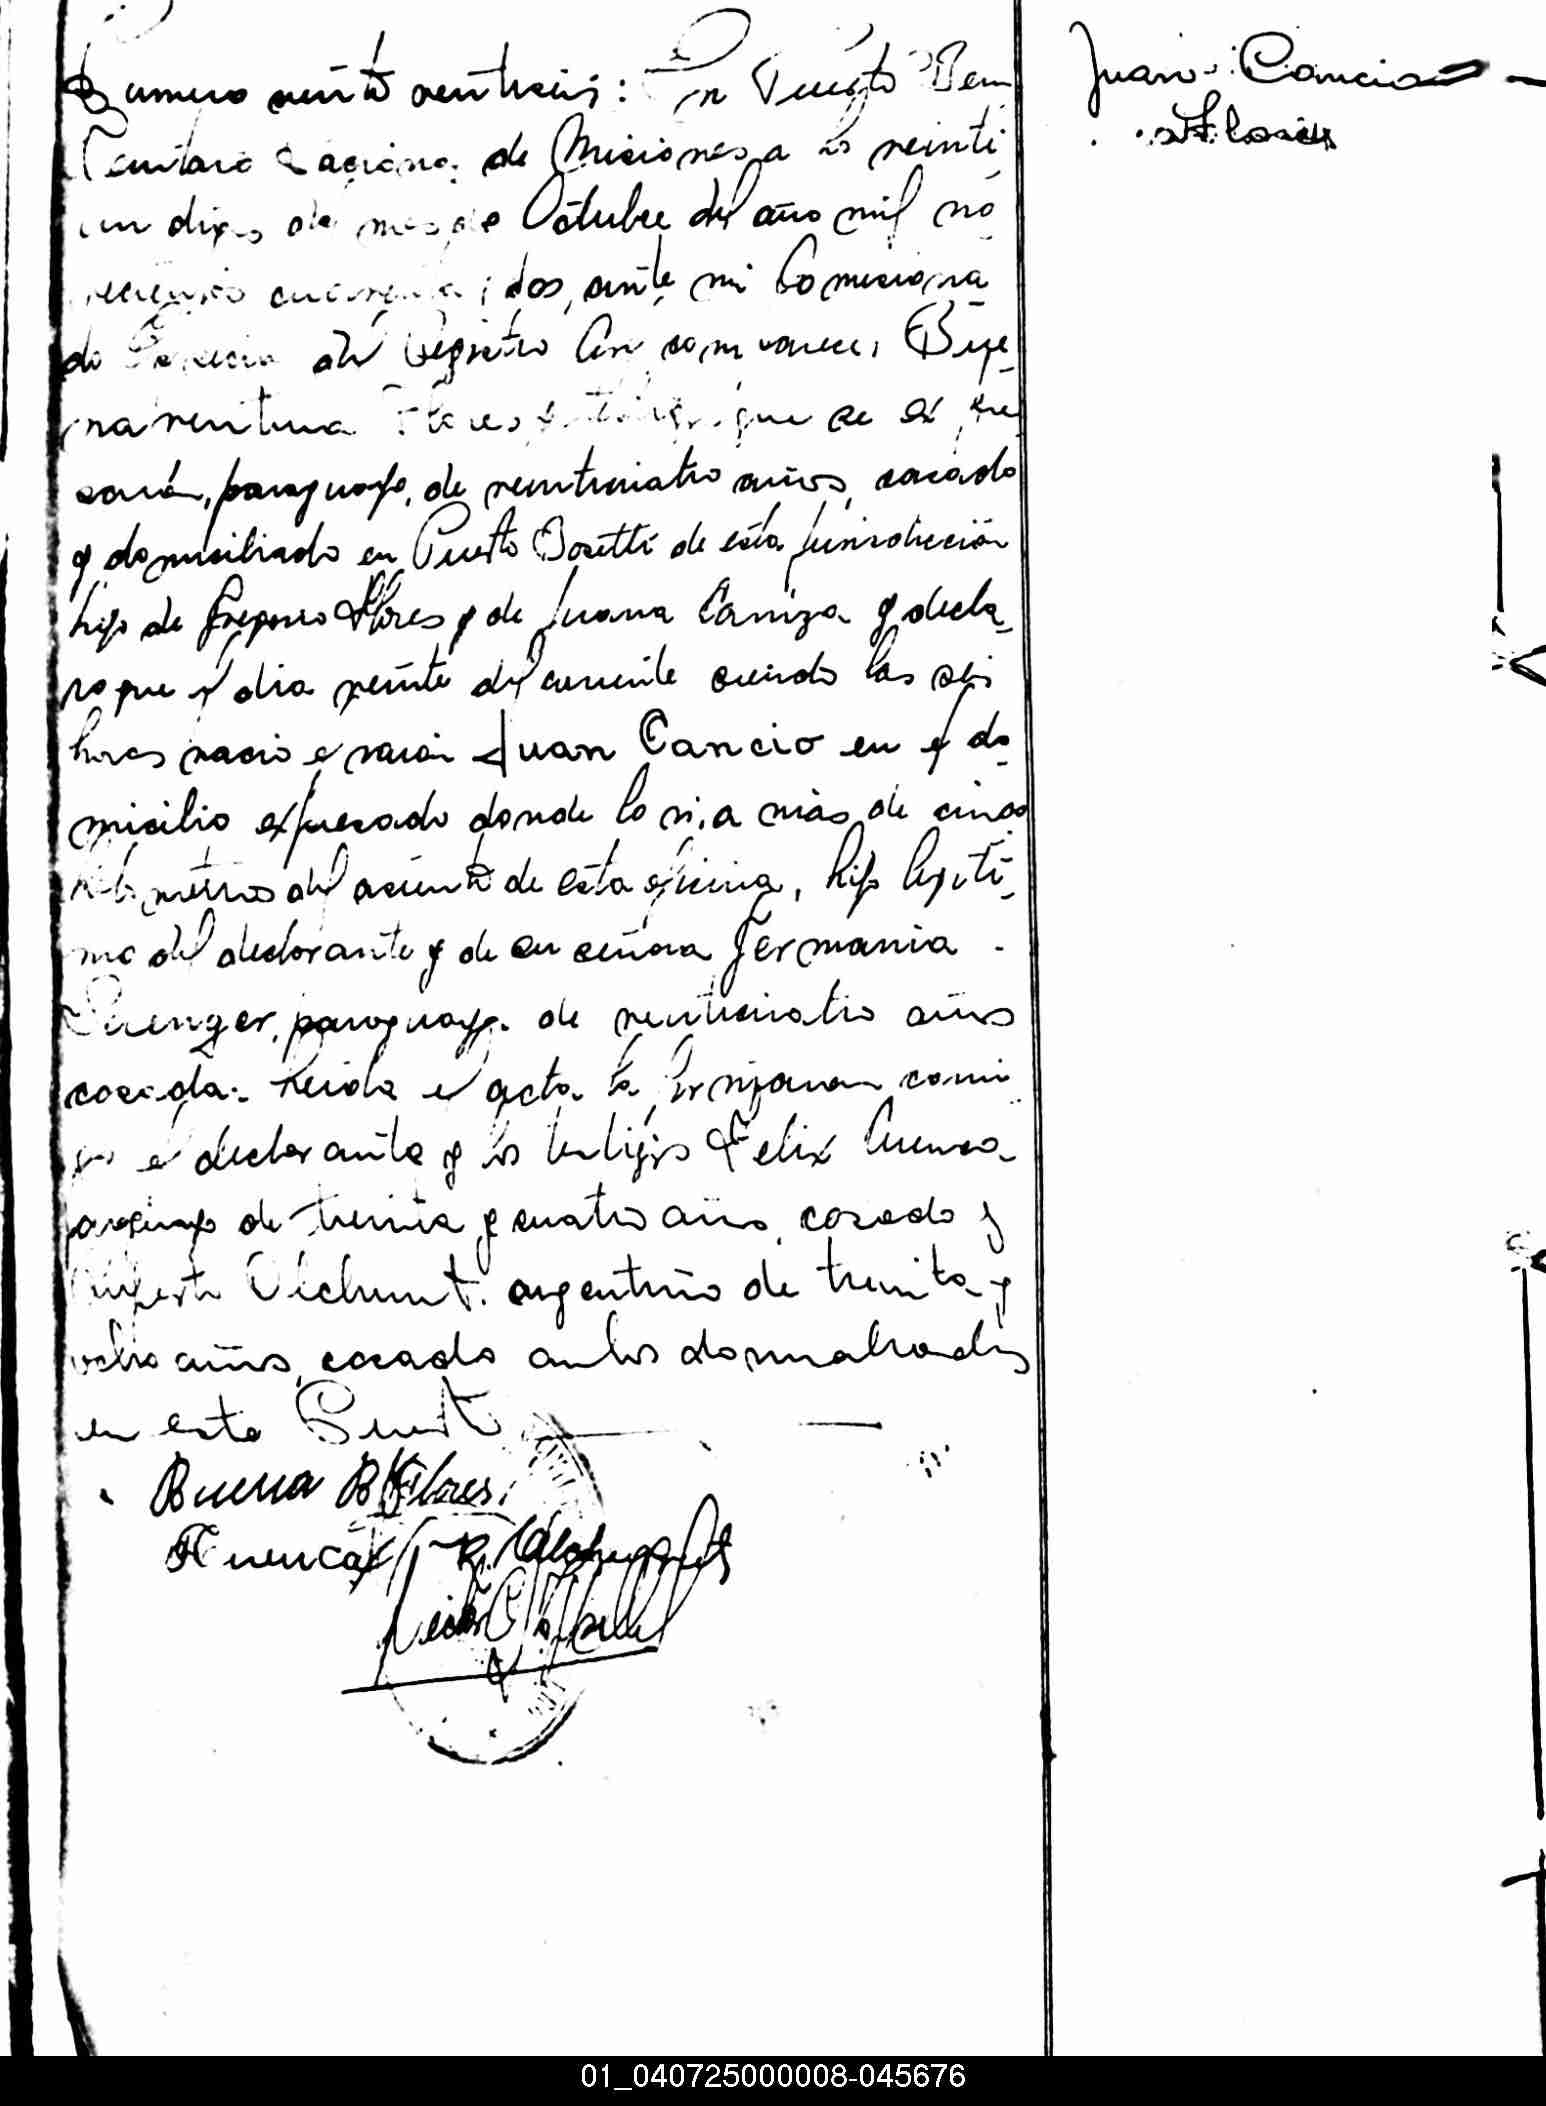 Juan Cancio
Flores
Numero ciento veintiseis: En Puerto Bem
Territorio Nacional de Misiones a los veinti
un dias del mes de Octubre del año mil no
vecientos cuarenta i dos, ante mi Comisiona
do Especial del Registro Civil comparece, Bue
naventura Flores que se expre
sará, paraguayo, de veinticuatro años, casado
y domiciliado en Puerto Bosetti de esta jurisdiccion
hijo de Gregorio Flores y de Juana Caniza y decla
ro que el dia veinte del corriente siendo las seis
horas nacio el varón Juan Cancio en el do
micilio expresado donde lo vi, a más de cinco
kilometros del asiento de esta oficina, hijo legiti
mo del declarante y de su señora Germania
paraguaya de veinticuatro años
casada. Leida el acta la firmaron conmi
go el declarante y los testigos Felix Cuenca
paraguayo de treinta y cuatro años, casado y
argentino de treinta y
ocho años, casado ambos domiciliados
en este Puerto
Buena B Flores
F Cuenca
01_040725000008-045676